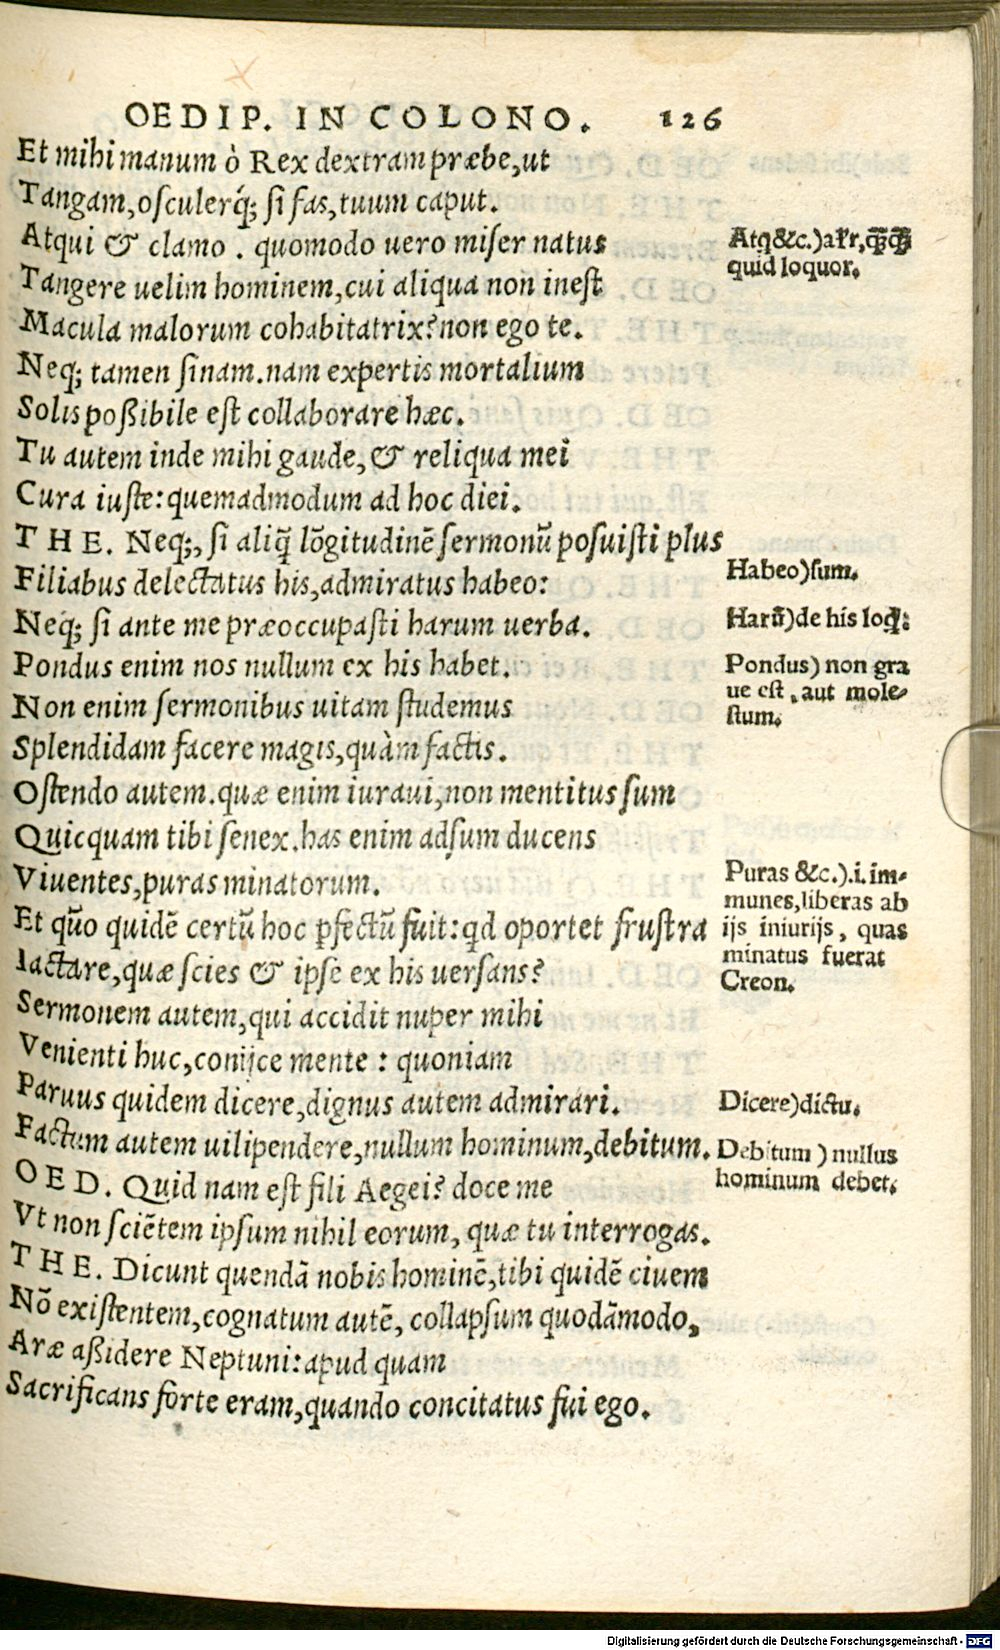 OEDIP. IN COLONO. 126
Et mihi manum ò Rex dextram præbe, ut
Tangam, osculerq́; si fas, tuum caput.
Atqui & clamo. quomodo uero miser natus
Tangere uelim hominem, cui aliqua non inest
Macula malorum cohabitatrix? non ego te.
Neq; tamen sinam. nam expertis mortalium
Solis poßibile est collaborare hæc.
Tu autem inde mihi gaude, & reliqua mei
Cura iuste: quemadmodum ad hoc diei.
THE. Neq;, si aliq̃ lõgitudinẽ sermonũ posuisti plus
Filiabus delectatus his, admiratus habeo:
Neq; si ante me præoccupasti harum uerba.
Pondus enim nos nullum ex his habet.
Non enim sermonibus uitam studemus
Splendidam facere magis, quàm factis.
Ostendo autem. quæ enim iuraui, non mentitus sum
Quicquam tibi senex. has enim adsum ducens
Viuentes, puras minatorum.
Et quõ quidẽ certũ hoc ꝑfectũ fuit: qd oportet frustra
Iactare, quæ scies & ipse ex his uersans?
Sermonem autem, qui accidit nuper mihi
Venienti huc, conijce mente: quoniam
Paruus quidem dicere, dignus autem admirari.
Factum autem uilipendere, nullum hominum, debitum.
OED. Quid nam est fili Aegei? doce me
Vt non sciẽtem ipsum nihil eorum, quæ tu interrogas.
THE. Dicunt quendã nobis hominẽ, tibi quidẽ ciuem
Nõ existentem, cognatum autẽ, collapsum quodãmodo,
Aræ aßidere Neptuni: apud quam
Sacrificans forte eram, quando concitatus fui ego.
quid loquor.
Habeo)sum.
Harũ)de his loq̃:
Pondus) non gra
ue est, aut mole-
stum.
Puras &c.).i. im-
munes, liberas ab
ijs iniurijs, quas
minatus fuerat
Creon.
Dicere)dictu.
Debitum) nullus
hominum debet.
Digitalisierung gefördert durch die Deutsche Forschungsgemeinschaft - DFG